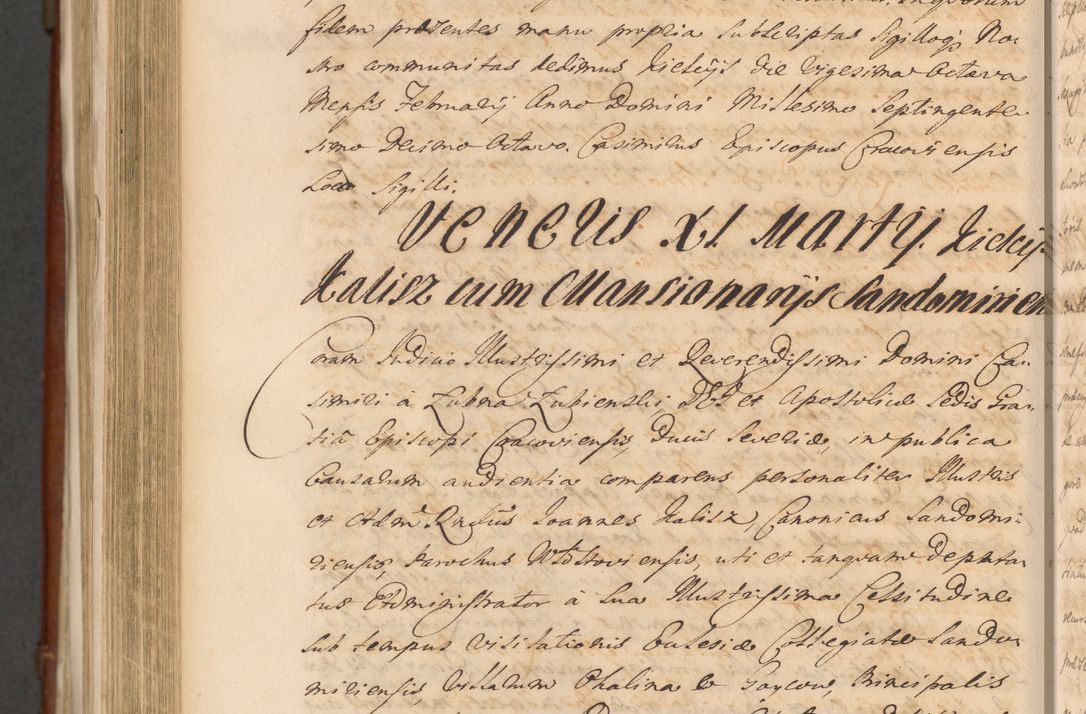 fidem præsentes manu propria subscriptas Sigilloq3 No-
stro communitas dedimus Kielcijs die Vigesima Octava
Mensis Februarij Anno Domini Millesimo Septingente-
simo Decimo Octavo. Casimirus Episcopus Cracoviensis
Loco Sigilli.
Veneris XI Martij. Kielcijs
Kalisz cum Mansionarijs Sandomirien
Coram Judicio Illustrissimi et Reverendissimi Domini Ca-
simiri à Łubna Łubienski DEI et Apostolicæ Sedis Gra-
tiâ Episcopi Cracoviensis, Ducis Severiæ, in publica
Causarum audientia comparens personaliter Illustris
et Adm. Rndus Joannes Kalisz Canonicus Sandomi-
riensis, Parochus Włostoviensis, uti et tanquam Deputa-
tus Administrator à Sua Illustrissima Celsitudine
sub tempus visitationis Ecclesiæ Collegiatæ Sando-
miriensis, Villarum Chalina et Principalis